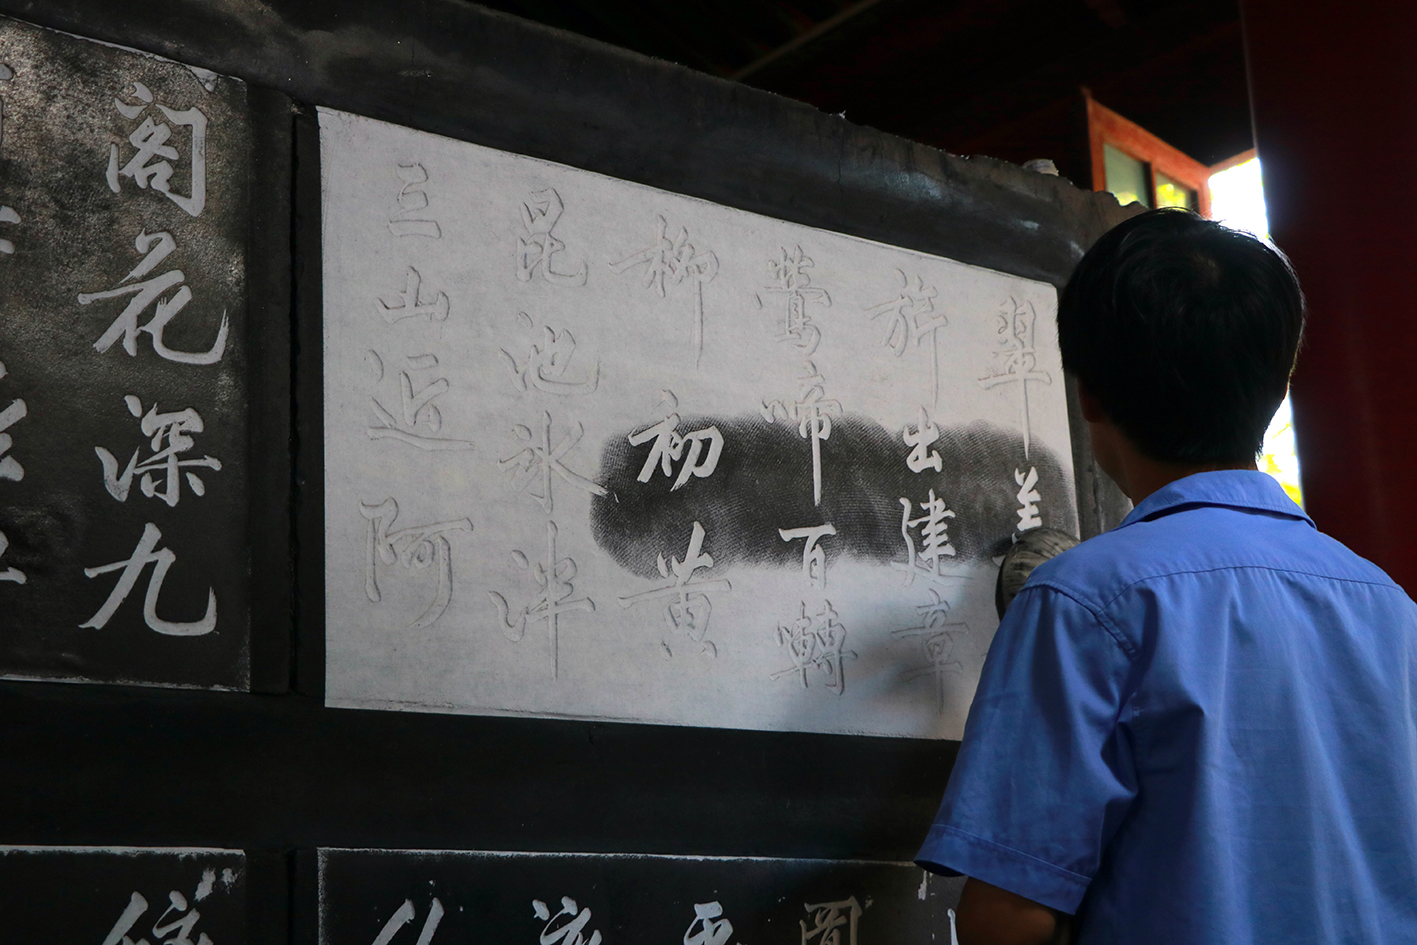 翠盖
旂出建章
鶯啼百囀
柳初黄
昆池氷泮
三山近阿
阁花深九